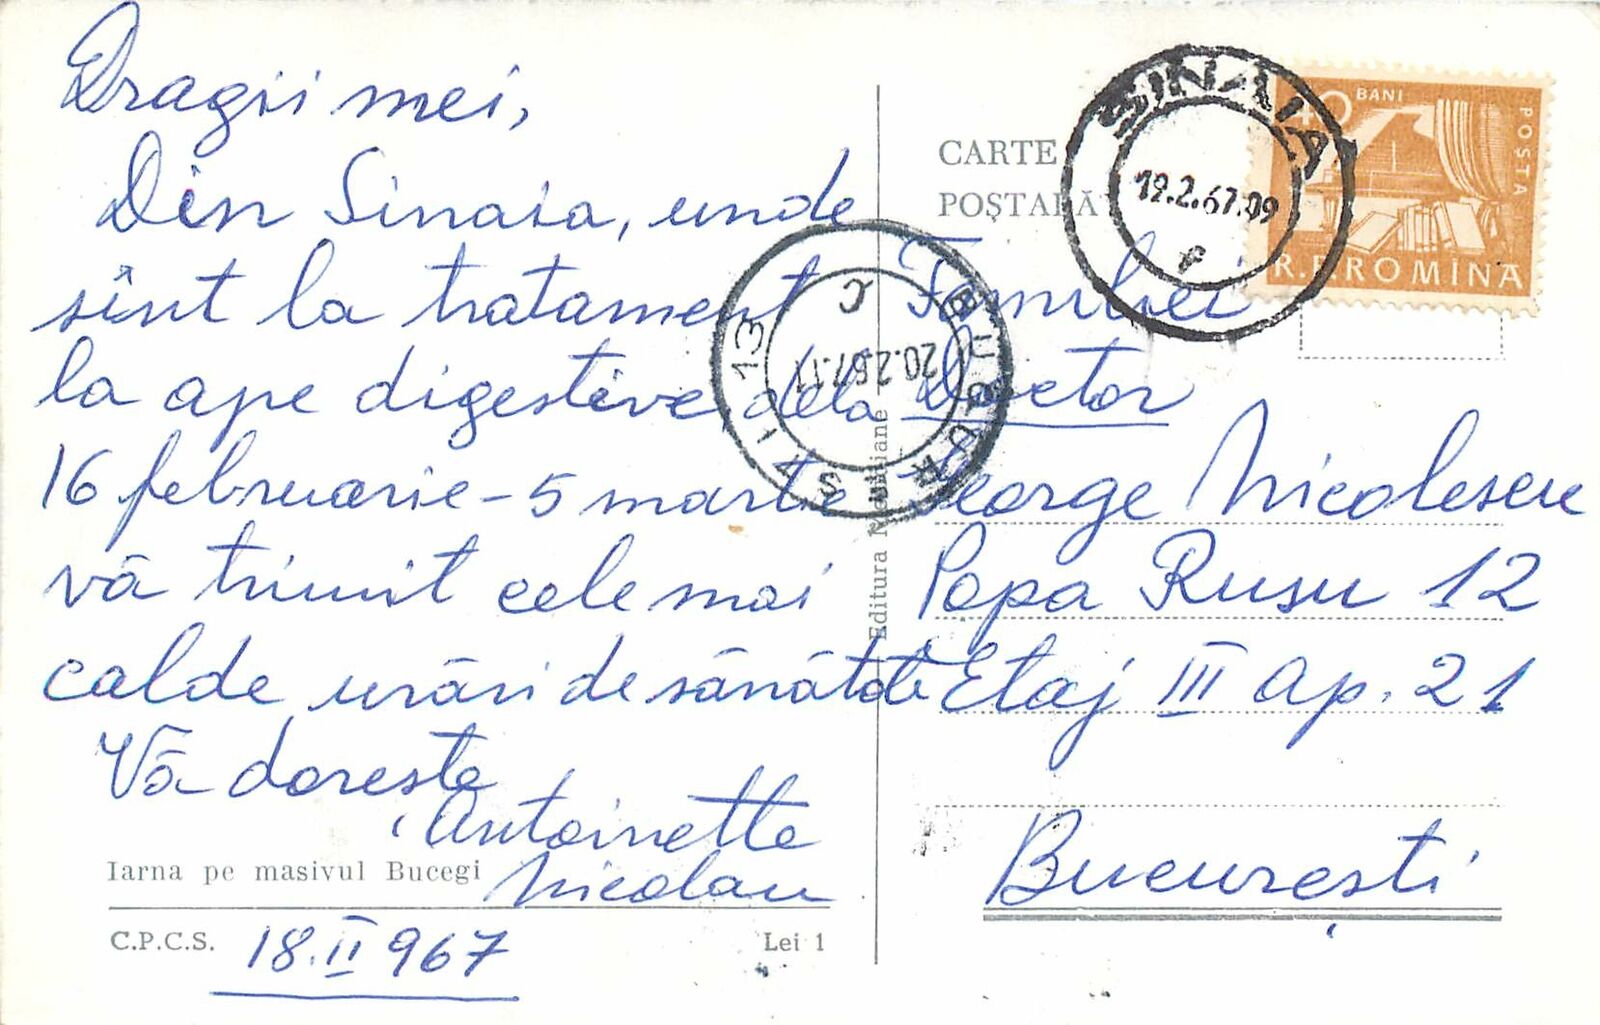 Dragii mei,
Din Sinaia, unde
sînt la tratament
la ape digestive, dela
16 februarie - 5 martie
vă trimit cele mai
calde urări de sănătate
Vă dorește
Antoinette
Nicolau
Iarna pe masivul Bucegi
C.P.C.S.
18.II 967
Lei 1
Editura Meridiane
CARTE
POȘTALĂ
SINAIA
19.2.67.09
40 BANI
POSTA
R.P.ROMINA
BUCUREȘTI 13
20.2.67.11
Familiei
Doctor
George Nicolescu
Popa Rusu 12
Etaj III ap. 21
București